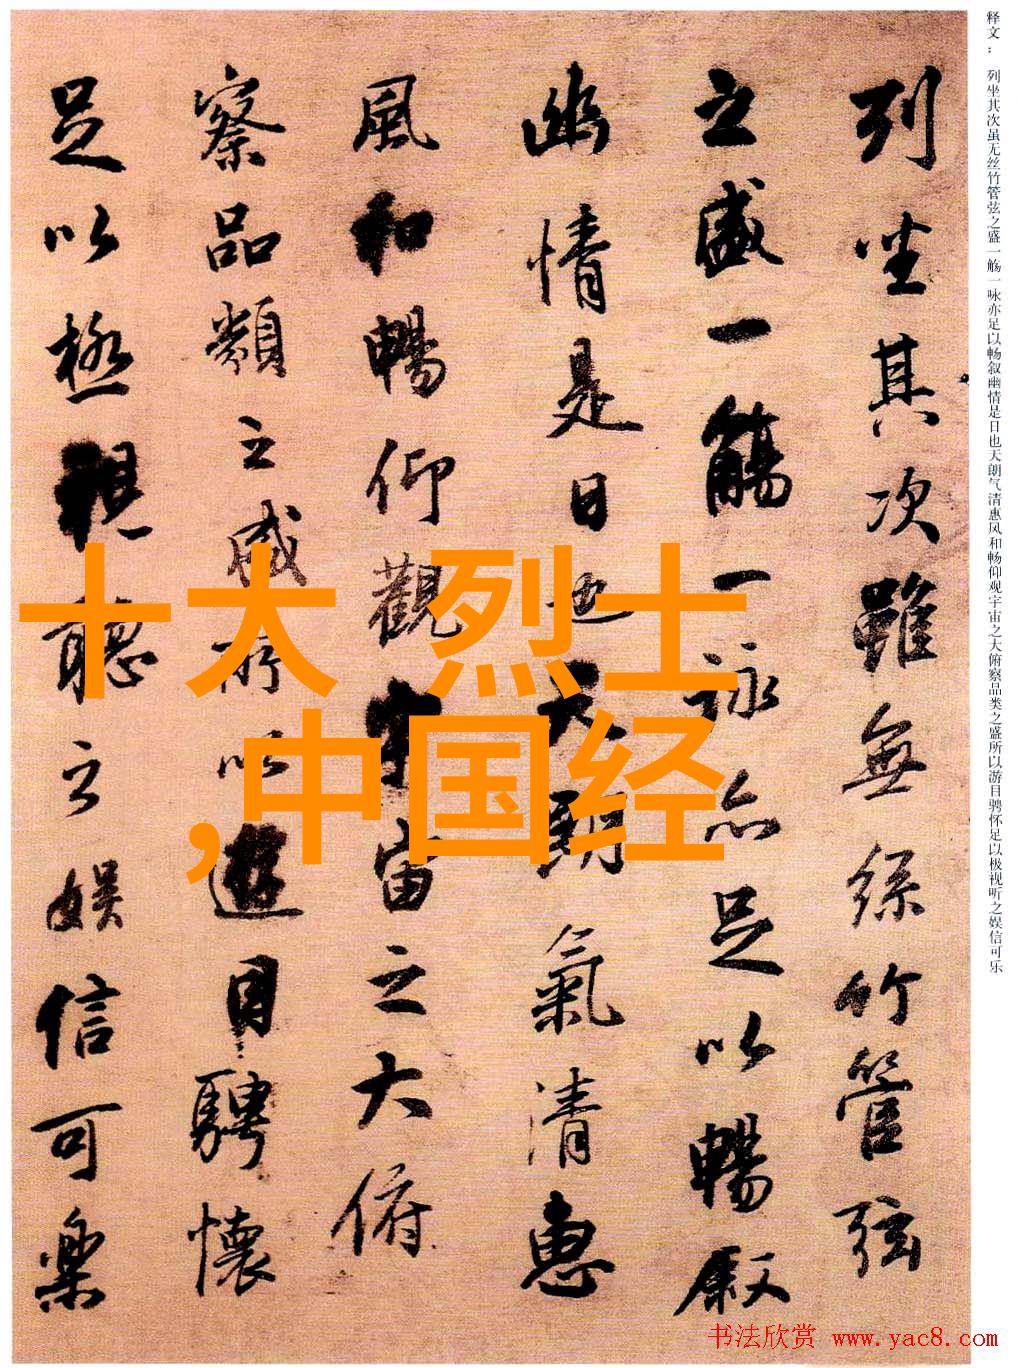 释文： 列坐其次虽无丝竹管弦之盛一觞一咏亦足以畅叙幽情是日也天朗气清惠风和畅仰观宇宙之大俯察品类之盛所以游目骋怀足以极视听之娱信可乐
列坐其次雖無絲竹管弦
之盛一觴一詠亦足以暢敘
幽情是日也天朗氣清惠
風和暢仰觀宇宙之大俯
察品類之盛所以遊目騁懷
足以極視聽之娛信可樂
十大 烈士
,中国经
书法欣赏 www.yac8.com